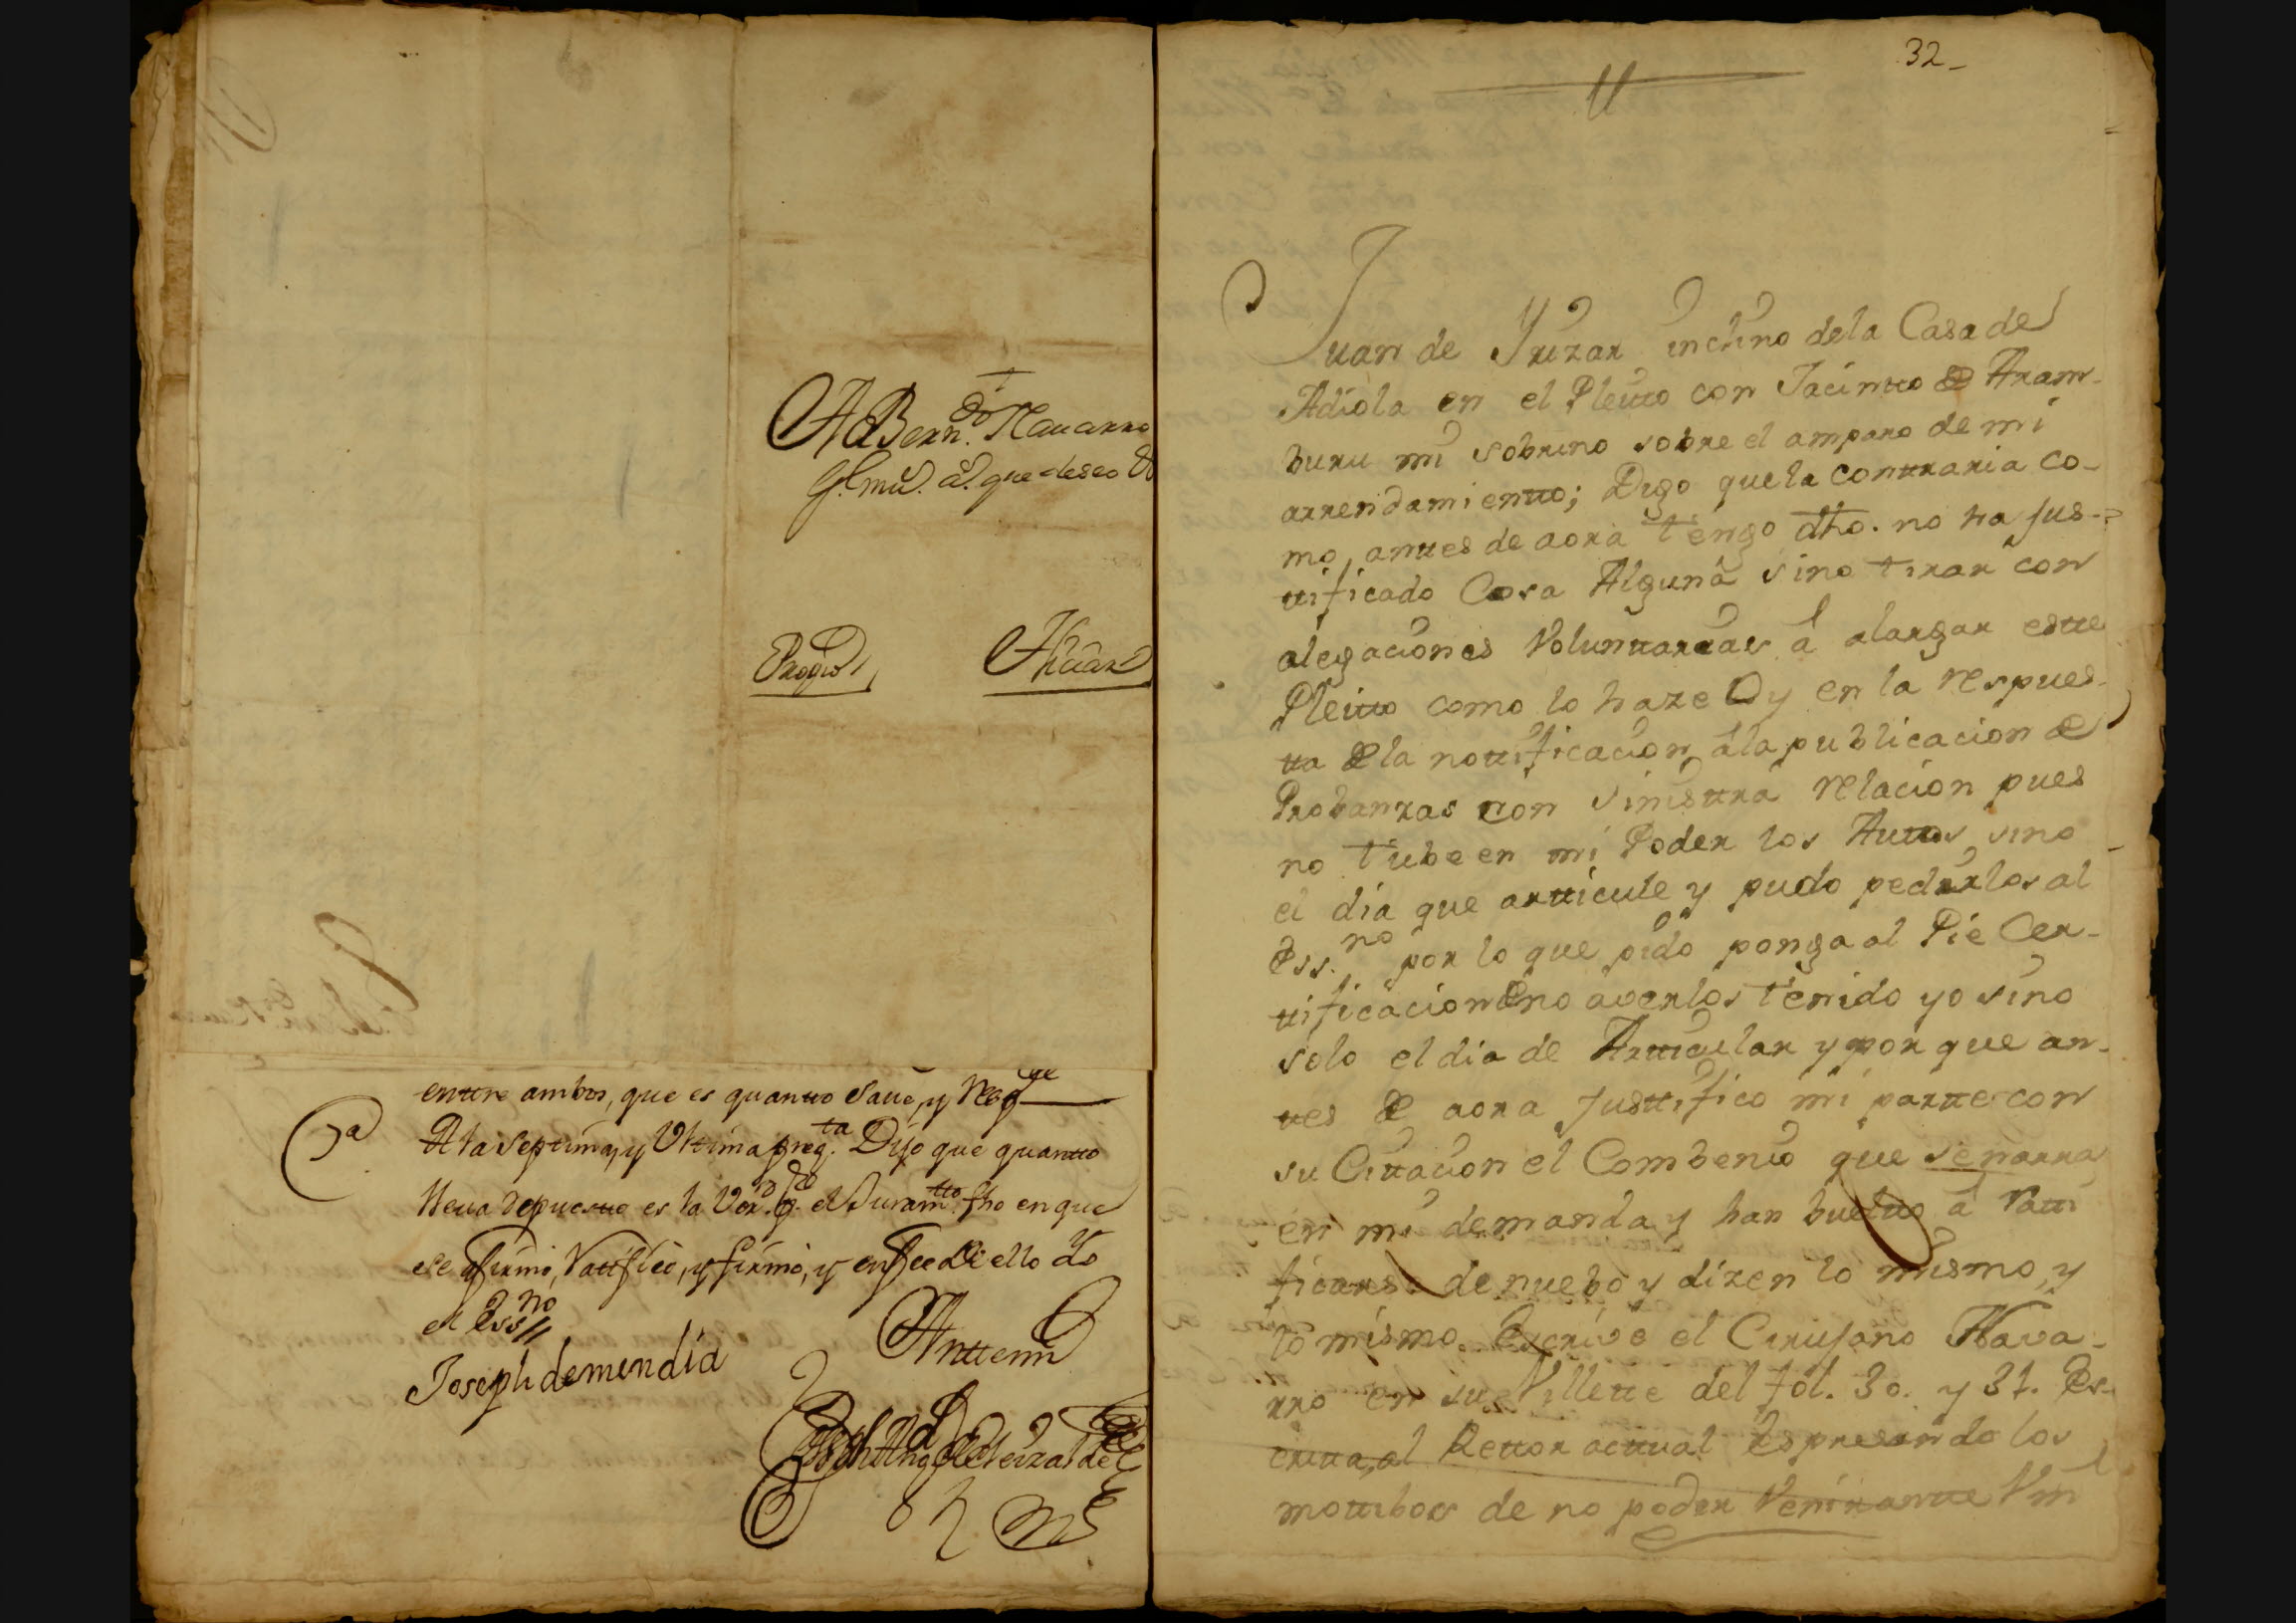 A Dn Berndo Nauarro
gl. mū. a. que deseo
Progreso
entre ambos, que es quantto saue, y Respde
7a
A la septima, y Vltima pregta. Dijo que quantto
lleua depuestto es la Verd. so el Juramtto. fho en que
se afirmó, Rattificó, y firmó, y en fee de ello Yo
el Essno
Joseph de mendia
Anttemi
32
Juan de Yrizar inclino de la Casa de
Adiola en el Pleitto con Jacintto de Aram-
buru mi sobrino sobre el amparo de mi
arrendamientto; Digo que la conttraria co-
mo, anttes de aora tengo dho. no ha jus-
ttificado Cosa Alguna sino tirar con
alegaciones Volunttarias a alargar estte
Pleitto como lo haze Oy en la respues-
tta de la nottificacion, a la publicacion de
Probanzas con siniesttra relacion pues
no tube en mi Poder los Auttos sino
el dia que artticule y pudo pedirlos al
Ess.no por lo que pido ponga al Pie Cer-
ttificacion de no averlos tenido yo sino
solo el dia de Artticular y por que an-
ttes de aora justtifico mi partte con
su Cittacion el Combenio que se narra
en mi demanda y han bueltto a Ratti
ficarse de nuebo y dizen lo mismo, y
lo mismo. Escrive el Cirujano Nava-
rro en su Villette del fol. 30. y 31. Es-
critta, al Rettor acttual Espresando los
mottibos de no poder Venir antte Vm